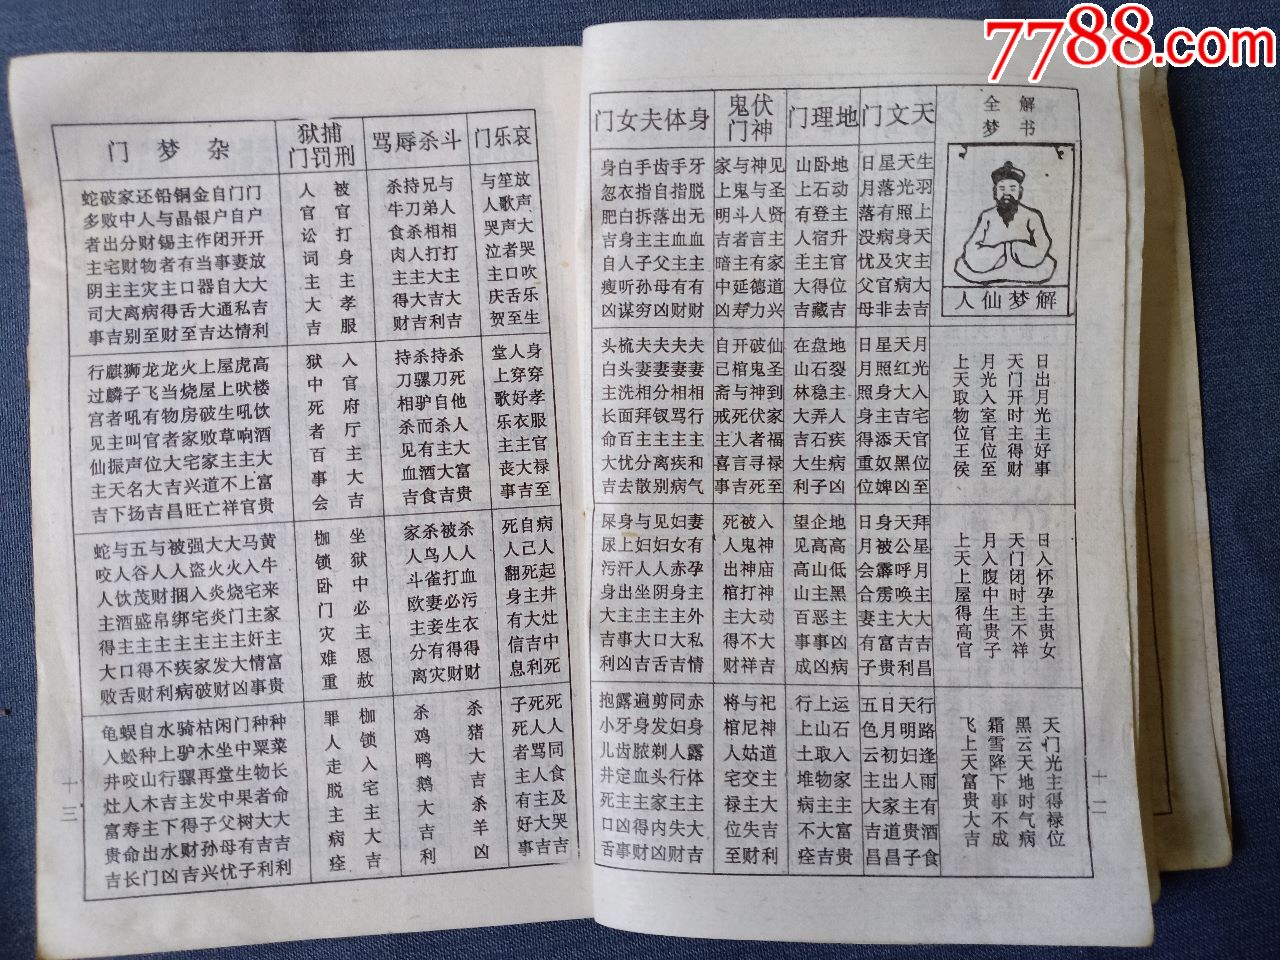 7788.com
全 解
梦 书
解梦仙人
日出月光主好事
天门开时主得财
月光入室官位至
上天取物位王侯
日入怀孕主贵女
天门闭时主不祥
月入腹中生贵子
上天上屋得高官
天门光主得禄位
黑云天地时气病
霜雪降下事不成
飞上天富贵大吉
天文门
生羽上天主大吉
天光照身灾病去
星落有病及官非
日月落没忧父母
月光入宅官位至
天红大吉天黑凶
星照身主添奴婢
日月照身得重位
拜星月主大吉昌
天公呼唤大吉利
身被霹雳主富贵
日月会合妻有子
行路逢雨有酒食
天明妇人主贵子
日月初出家道昌
五色云主大吉昌
地理门
地动主升官位吉
卧石登宿主得藏
山上有人主大吉
地裂主人疾病凶
盘石稳弄石生子
在山林大吉大利
地高低黑主凶病
企高山主恶事凶
望见高山百事成
运石入家主富贵
上山取物主大吉
行上土堆病不痊
伏神鬼门
见圣贤主家道兴
神与人言有德力
与鬼斗者主延寿
家上明吉暗中凶
仙圣到家福禄至
破鬼神伏者寻死
开棺与死人言吉
自已斋戒主喜事
入神庙神动大吉
被鬼神打大不祥
死人出棺主得财
祀神道主大吉利
与尼姑交主失财
将棺人宅禄位至
身体夫女门
牙脱无血主有财
手指出血主有财
齿自落主父母凶
手指拆主子孙穷
白衣白身人听谋
身忽肥吉自瘦凶
夫妻相行主和气
夫妻相骂主疾病
夫妻分钗主离别
夫妻相拜主分散
梳头洗面百忧去
头白主长命大吉
妻有孕主外私情
妇女赤身主大吉
见妇人阴主口舌
与妇人坐主大吉
身上汗出主事凶
屎尿污身大吉利
赤身露体主大吉
同妇人行主失财
剪发剃头家内凶
遍身脓血主得财
露牙齿定主凶事
抱小儿井死口舌
十二
哀乐门
放声大哭吹乐生
笙歌声者口舌至
与人哭泣主庆贺
身穿孝服官禄至
人穿好衣主大吉
堂上歌乐主丧事
病人起井灶中死
自己死主大吉利
死人翻身有信息
死人同食及哭吉
死人骂人主大吉
子死者主有好事
斗杀辱骂
与人相打主大吉
兄弟相打大吉利
持刀杀人主大吉
杀牛食肉主得财
杀死他人大富贵
持刀自杀主大吉
杀骡驴而有酒食
持刀相杀见血吉
杀人血污衣得财
被人打必生得财
杀鸟雀妻妾有灾
家人斗欧主分离
杀猪大吉杀羊凶
杀鸡鸭鹅大吉利
捕狱刑罚门
被官打身主孝服
人官讼词主大吉
入官府厅主大吉
狱中死者百事会
坐狱中必主恩赦
枷锁卧门灾难重
枷锁入宅主大吉
罪人走脱主病痊
杂梦门
门户开放大吉利
门自开妻大私情
自户闭事自通达
金银作当器大吉
铜晶主有口舌至
铅与锡者主得财
还人财物灾病至
家中分财主离别
破败出宅主大吉
蛇多者主阴司事
高楼饮酒大富贵
虎吠吼响主上官
屋上生草主不祥
上屋破败家道亡
火烧房家宅兴旺
龙当物者大吉昌
龙飞有官位大吉
狮子吼叫声名扬
麒麟者主振天下
行过宫见仙主吉
黄牛来家主富贵
马入宅主奸情事
大火烧门主大凶
大火炎炎主发财
强盗入宅主家破
被人捆绑主疾病
与人财帛主不利
五谷茂盛主得财
与人饮酒主口舌
蛇咬人主得大败
种菜长命大吉利
种粟物者大吉利
门中生果树有子
闲坐堂中父母忧
枯木再发子孙兴
骑驴骡主得财吉
水上行吉下水凶
自种山木主出门
蜈蚣咬人寿命长
龟入井灶富贵吉
十三